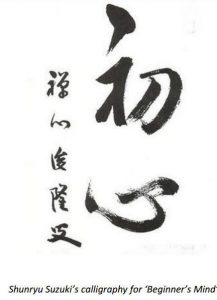 初心
禪心俊隆
Shunryu Suzuki's calligraphy for ‘Beginner’s Mind